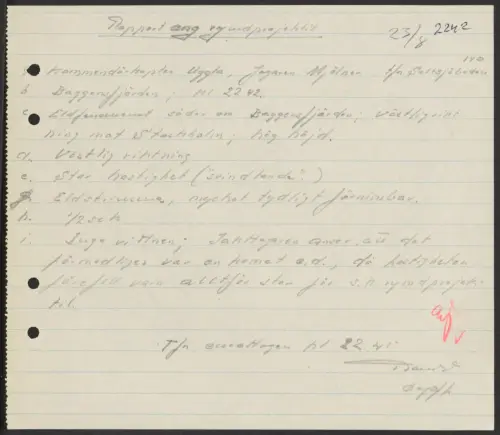 Rapport ang rymdprojektil 23/8 2242
a Kommendörkapten Uggla, Jagaren Mjölner tfn Saltsjöbaden
b. Baggensfjärden; kl 2242.
c Eldfenomenet söder om Baggensfjärden; västlig rikt
ning mot Stockholm; hög höjd.
d. Västlig riktning
e. Stor hastighet ("svindlande")
g. Eldstrimma, mycket tydligt förnimbar.
h. 1/2 sek
i. Inga vittnen; Iakttagaren anser att det
förmodligen var en komet e.d., då hastigheten
föreföll vara alltför stor för s.k rymdprojek-
til.
Tfn mottagen kl 22.45